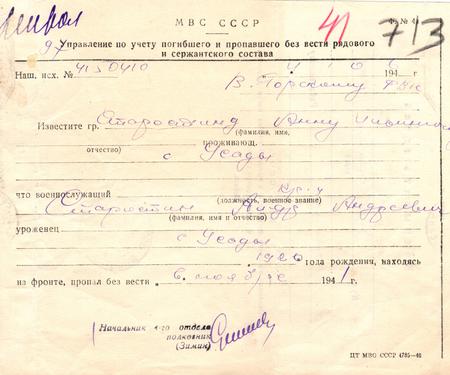 МВС СССР
41 713
Управление по учету погибшего и пропавшего без вести рядового
и сержантского состава
Наш. исх. № 4150410 194 г.
В. Горскому РВК
Известите гр. Старостину Анну
(фамилия, имя,
отчество) проживающ.
с Усады
что военнослужащий кр-ц
(должность, военное звание)
Старостин Андреевич
(фамилия, имя и отчество)
уроженец
с Усады
года рождения, находясь
на фронте, пропал без вести в ноябре 1941 г.
Начальник отдела
полковник
(Зимин)
ЦТ МВО СССР 4785-46